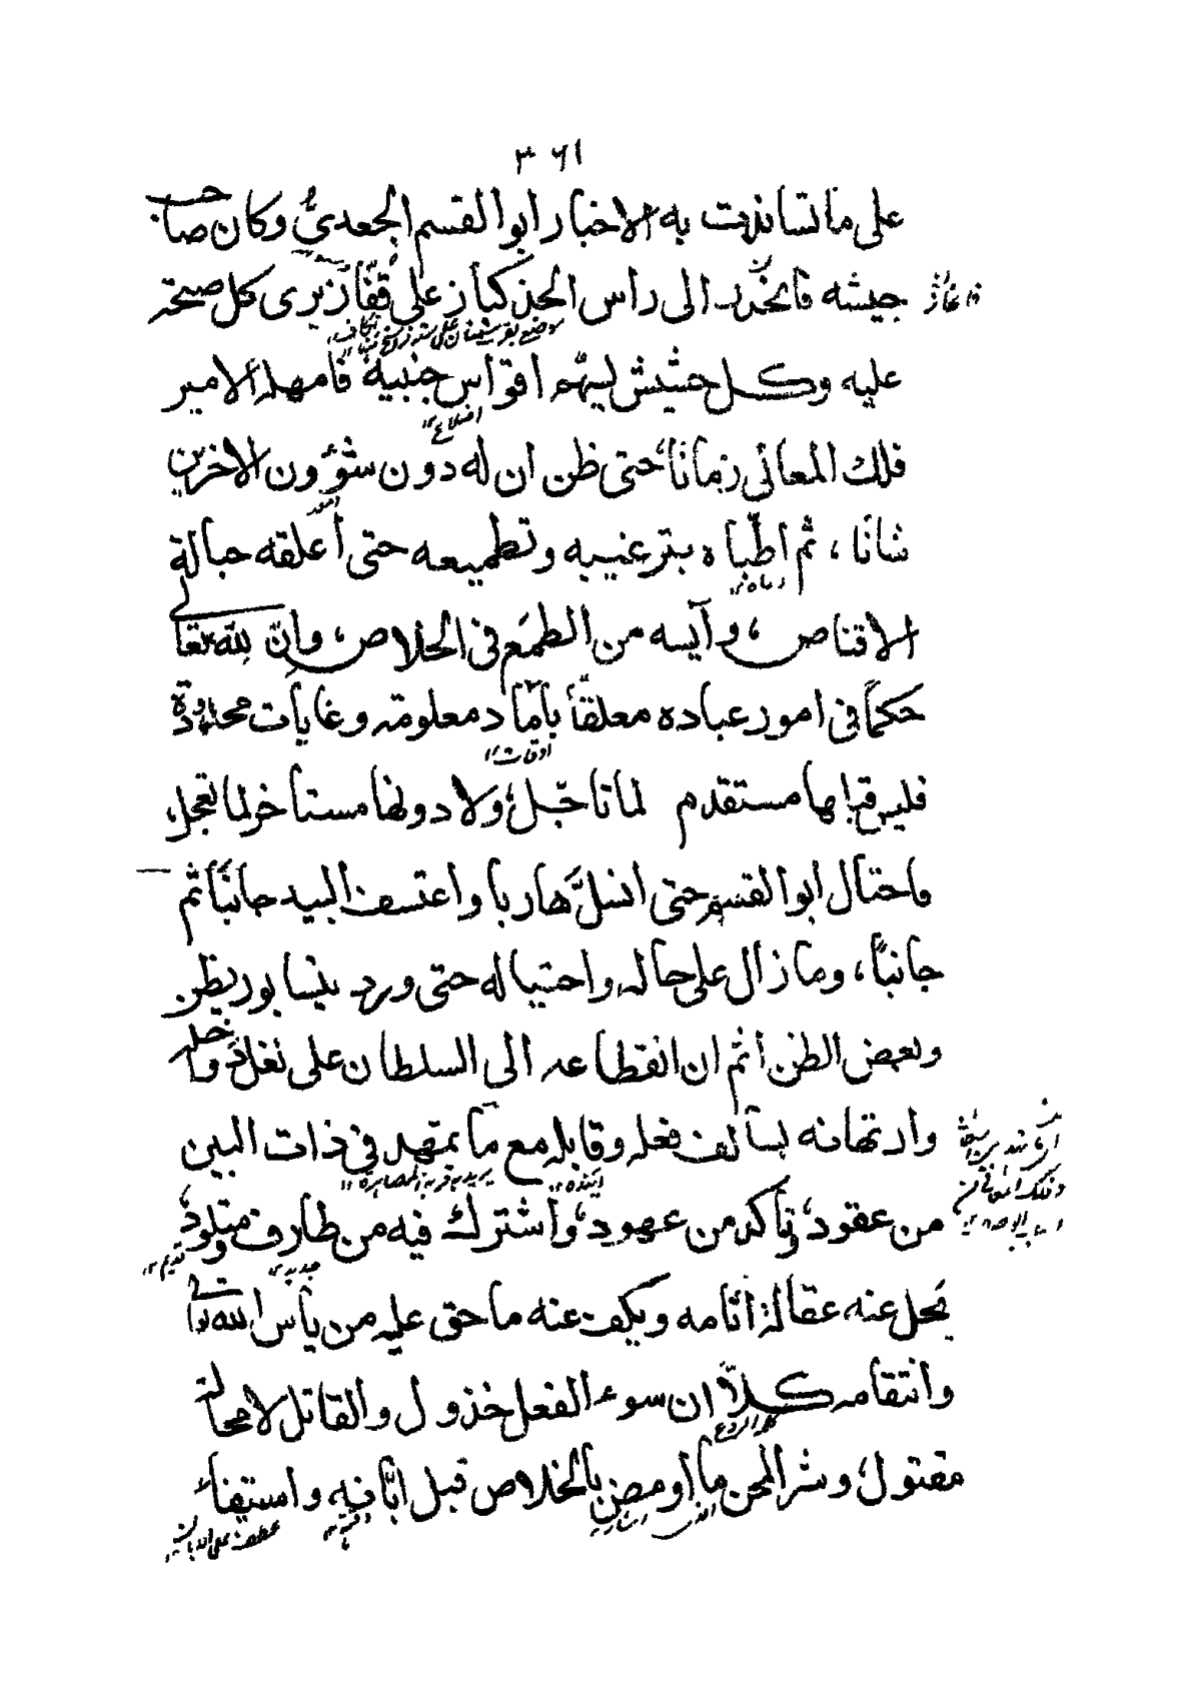 ٣٦١
على ما تساندت به الاخبار ابو القسم الجعدىُّ وكان صاحب
جيشه فانحدر الى راس الحد كباز على قفّاز يرى كل صيحة
عليه وكل حشيش ليهم اقواس جنبية فامهله الامير
فلك المعانى زمانًا، حتى ظن ان له دون شؤون الاخرين
شانًا، ثم اطّباه بترغيبه وتطميعه حتى أعلقه حبالة
الاقناص، وآيسه من الطمَع فى الخلاص، وانّ لله تعالى
حكمًا فى امور عباده معلقًا بآماد معلومة وغايات محدودة
اوقات
فليس قبلها مستقدم لما تاجّل، ولا دونها مستاخر لما تعجل،
فاحتال ابو القسم حتى انسلَّ هاربا واعتسف البيد جانبًا ثم
جانبًا، وما زال على حاله واحتياله حتى ورد نيسابور يظن
وبعض الظن اثم ان انقطاعه الى السلطان على نغل دَخله
وارتهانه بسالف فعله وقابله مع ما يمهد فى ذات البين
من عقود، وتأكد من عهود، واشترك فيه من طارف ومتلود،
جديد
قديم
يحل عنه عقالة اثامه ويكف عنه ما حق عليه من بأس الله تعالى
وانتقامه كلاّ ان سوء الفعل خذول والقاتل لا محالة
مقتول، وشر المحن ما أومض بالخلاص قبل ابّانه واستفاء